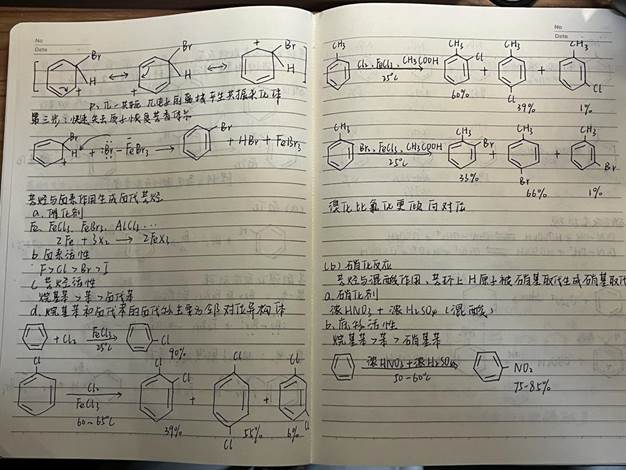 No
Date
Br
H
Br
H
Br
H
P-π-共轭
第三步:快速失去质子恢复苯香体系
Br
H
+ :Br-FeBr₃ → Br + HBr + FeBr₃
芳烃与卤素作用生成卤代芳烃
a. 催化剂
Fe. FeCl₃. FeBr₃. AlCl₃...
2Fe + 3X₂ → 2FeX₃
b. 卤素活性
F > Cl > Br > I
c. 芳烃活性
烷基苯 > 苯 > 卤代苯
d. 烷基苯和卤代苯的卤代物主要为邻对位异构体
+ Cl₂ FeCl₃ 25℃ → Cl 90%
Cl Cl₂ FeCl₃ 60~65℃ → Cl Cl 39% + Cl Cl 55% + Cl Cl 6%
No
Date
CH₃ Cl₂, FeCl₃, CH₃COOH 25℃ → CH₃ Cl 60% + CH₃ Cl 39% + CH₃ Cl 1%
CH₃ Br₂, FeCl₃, CH₃COOH 25℃ → CH₃ Br 33% + CH₃ Br 66% + CH₃ Br 1%
溴化比氯化更倾向对位
(b) 硝化反应
芳烃与混酸作用,苯环上H原子被硝基取代生成硝基取代
a. 硝化剂
浓HNO₃ + 浓H₂SO₄ (混酸)
b. 底物活性
烷基苯 > 苯 > 硝基苯
浓HNO₃ + 浓H₂SO₄ 50-60℃ → NO₂
75-85%